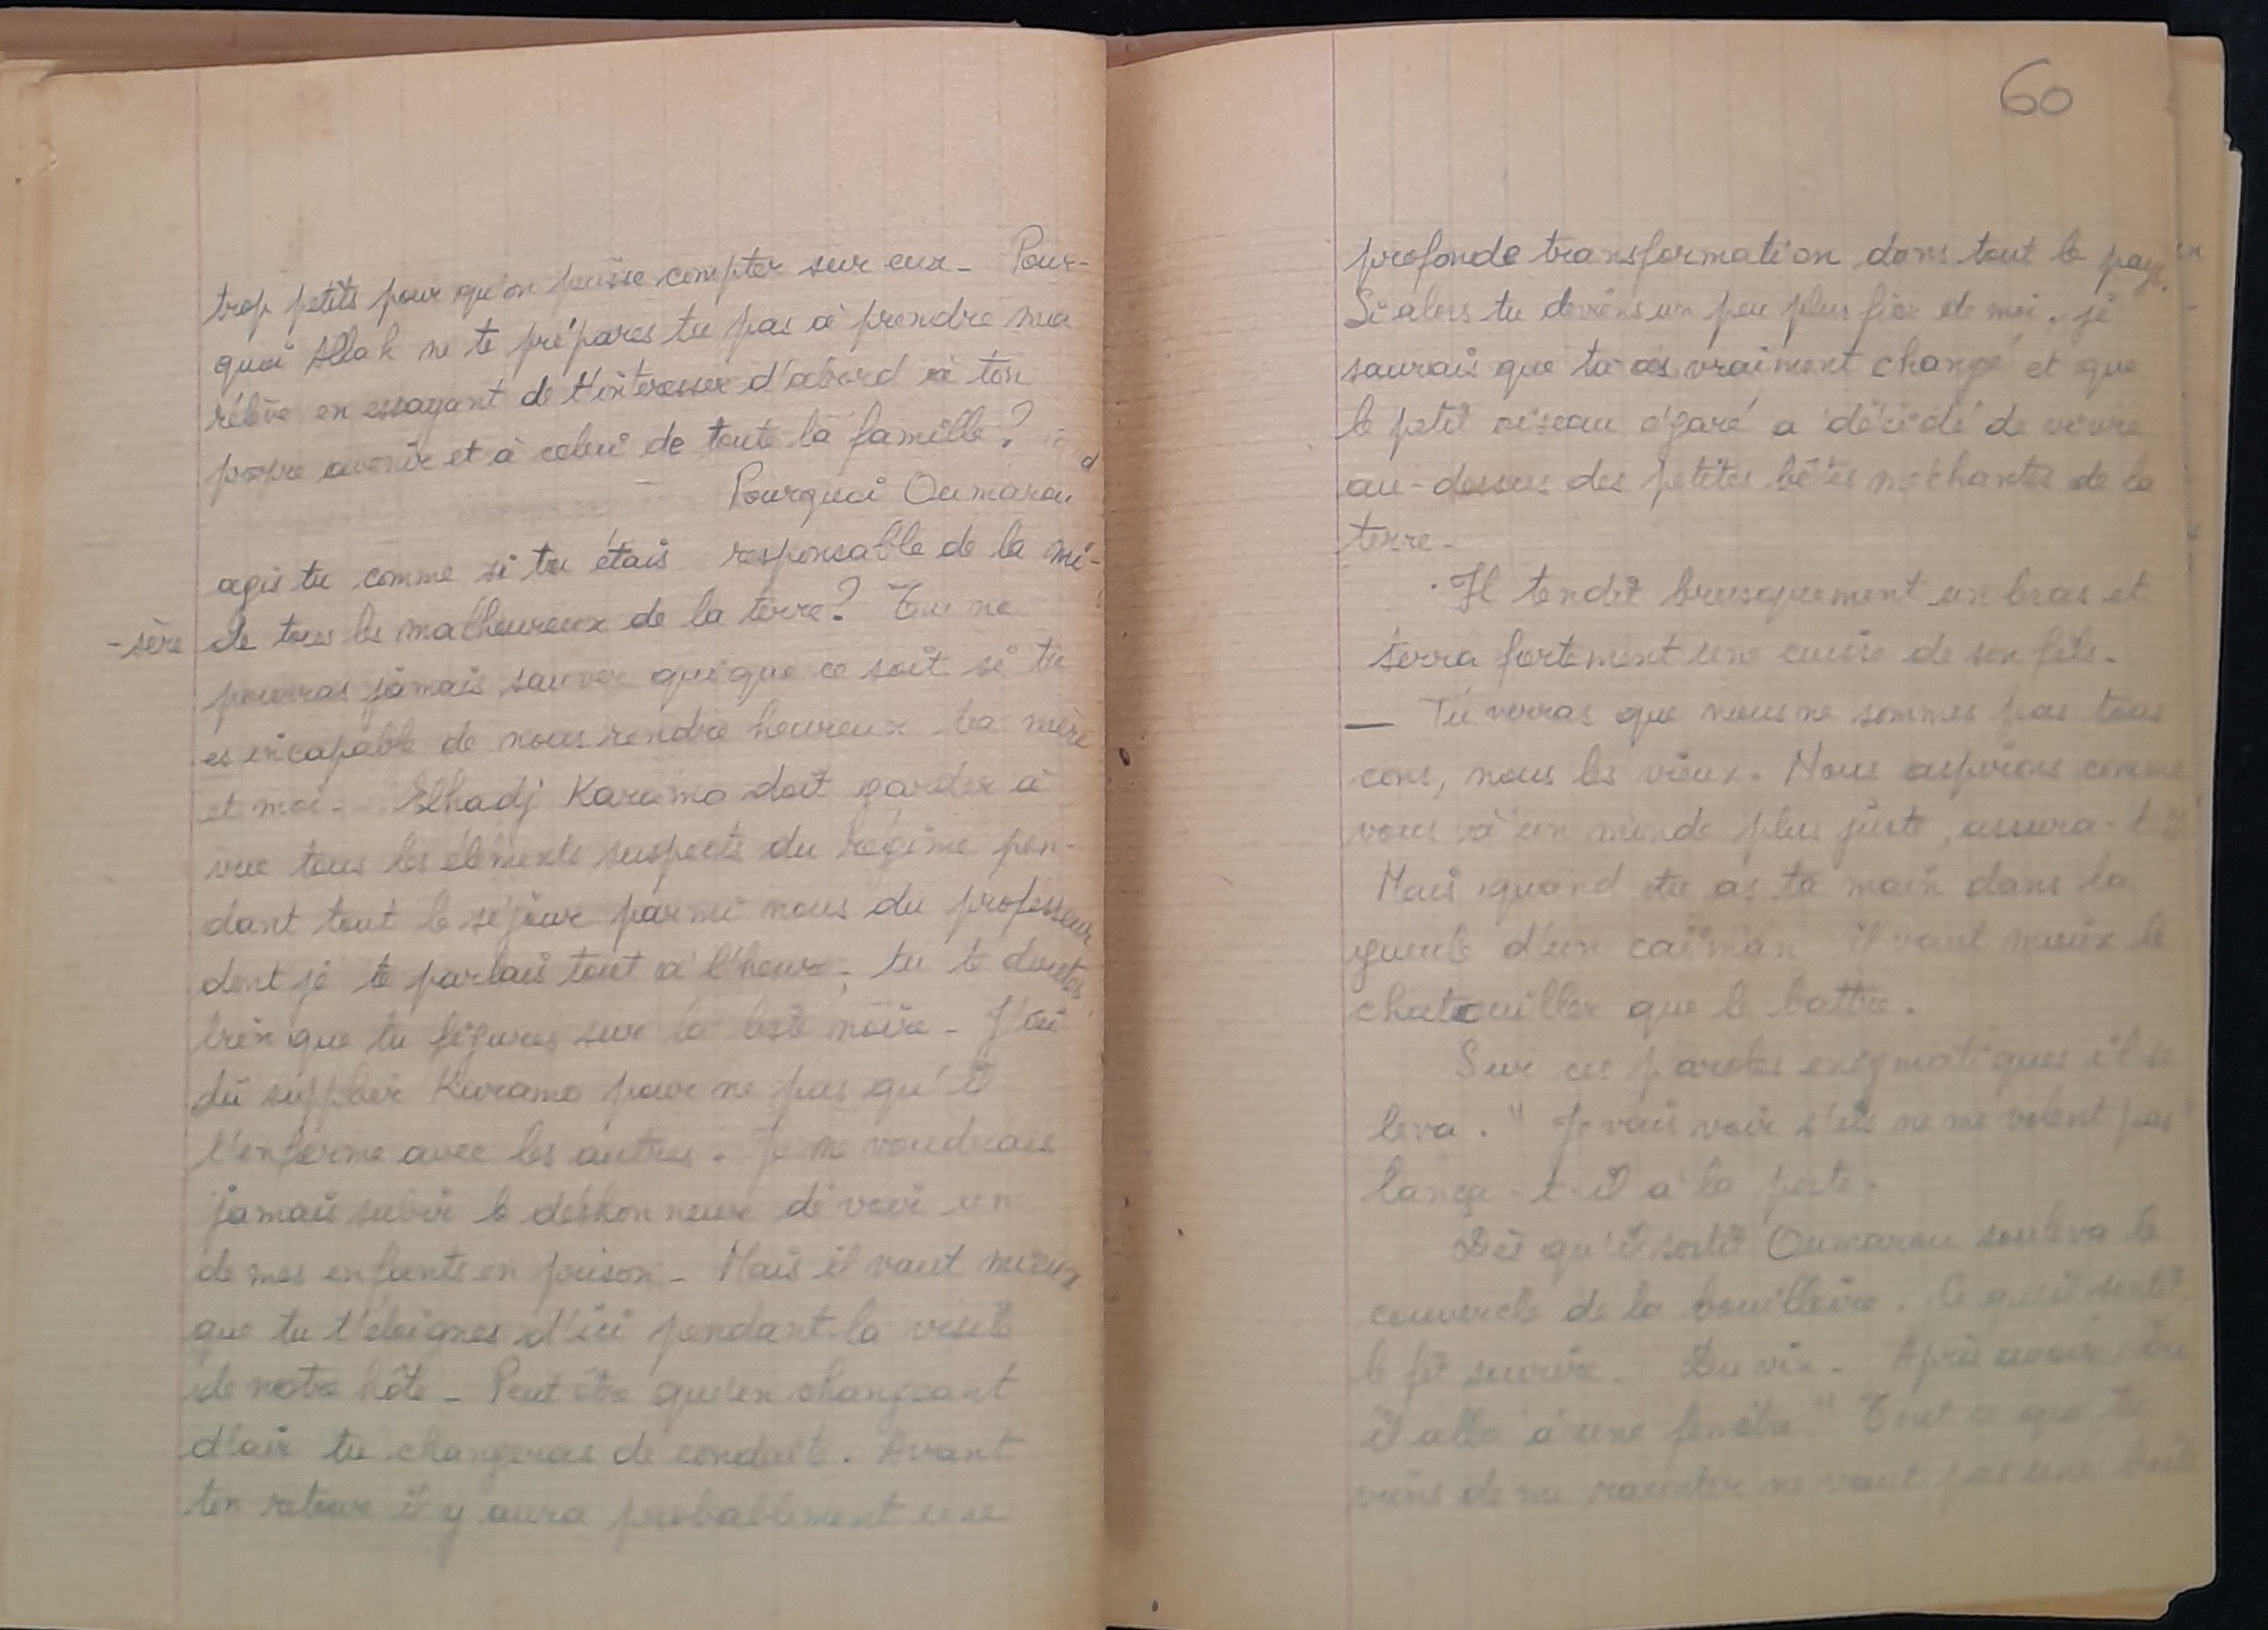 trop petits pour qu'on puisse compter sur eux - Pour-
quoi Allah ne te prépares tu pas à prendre ma
relève en essayant de t'intéresser d'abord à ton
propre avenir et à celui de toute la famille ?
Pourquoi Oumarou
agis tu comme si tu étais responsable de la mi-
-sère de tous les malheureux de la terre ? Tu ne
pourras jamais sauver quique ce soit si tu
es incapable de nous rendre heureux ta mère
et moi - Elhadj Karamo doit garder à
vue tous les éléments suspects du régime pen-
dant tout le séjour parmi nous du professeur
dont je te parlais tout à l'heure ; tu te doutes
bien que tu figures sur la liste noire - J'ai
dû supplier Karamo pour ne pas qu'il
t'enferme avec les autres. Je ne voudrais
jamais subir le déshonneur de voir un
de mes enfants en prison - Mais il vaut mieux
que tu t'éloignes d'ici pendant la visite
de notre hôte - Peut être qu'en changeant
d'air tu changeras de conduite. Avant
ton retour il y aura probablement une
60
profonde transformation dans tout le pays.
Si alors tu deviens un peu plus fier de moi, je
saurais que tu as vraiment changé et que
le petit oiseau égaré a décidé de vivre
au-dessus des petites bêtes méchantes de la
terre -
Il tendit brusquement un bras et
serra fortement une cuisse de son fils.
— Tu verras que nous ne sommes pas tous
cons, nous les vieux. Nous aspirons comme
vous à un monde plus juste, assura-t-il
Mais quand tu as ta main dans la
gueule d'un caïman il vaut mieux le
chatouiller que le battre.
Sur ces paroles enigmatiques il se
leva. " Je vais voir s'ils ne me volent pas"
lança-t-il à la porte.
Dès qu'il sortit Oumarou souleva le
couvercle de la bouilloire. Ce qu'il sentit
le fit sourire - Du vin - Après avoir bu
il alla à une fenêtre " Tout ce que tu
viens de me raconter ne vaut pas une